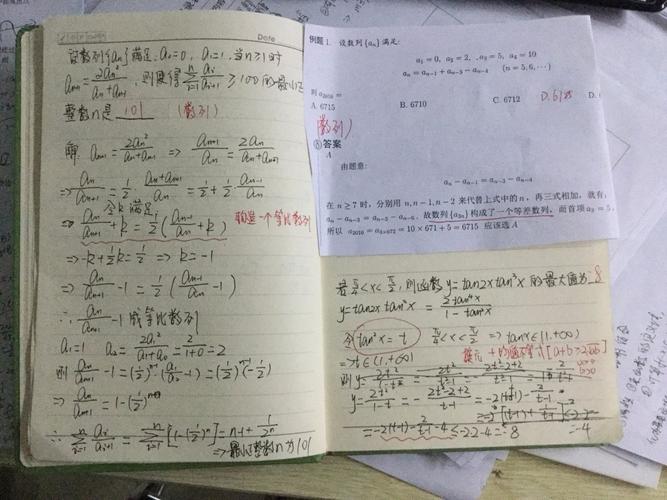 Date
设数列{aₙ}满足: a₀=0, a₁=1, 当n≥1时
aₙ₊₁ = 2aₙ²/(aₙ+aₙ₋₁), 则使得 Σᵢ₌₁ⁿ aᵢ/aᵢ₊₁ ≥100 的最小正
整数n是 101 (数列)
解: aₙ₊₁ = 2aₙ²/(aₙ+aₙ₋₁) ⇒ aₙ₊₁/aₙ = 2aₙ/(aₙ+aₙ₋₁)
⇒ aₙ/aₙ₊₁ = 1/2 · (aₙ+aₙ₋₁)/aₙ = 1/2 + 1/2 · aₙ₋₁/aₙ
令k满足
⇒ aₙ/aₙ₊₁ + k = 1/2 (aₙ₋₁/aₙ + k) 构造一个等比数列
⇒ -k+1/2k = 1/2 ⇒ k=-1
⇒ aₙ/aₙ₊₁ - 1 = 1/2 (aₙ₋₁/aₙ - 1)
∴ aₙ/aₙ₊₁ - 1 成等比数列
a₁=1 a₂ = 2a₁²/(a₁+a₀) = 2/(1+0) = 2
则 aₙ/aₙ₊₁ - 1 = (1/2)ⁿ⁻¹ (a₁/a₂ - 1) = (1/2)ⁿ⁻¹ (-1/2)
⇒ aₙ/aₙ₊₁ = 1-(1/2)ⁿ
∴ Σᵢ₌₁ⁿ aᵢ/aᵢ₊₁ = Σᵢ₌₁ⁿ [1-(1/2)ⁿ] = n-1+1/2ⁿ
⇒ 最小整数n为101
例题1. 设数列{aₙ}满足:
a₁ = 0, a₂ = 2, a₃ = 5, a₄ = 10
aₙ = aₙ₋₁ + aₙ₋₃ − aₙ₋₄ (n = 5, 6, ⋯)
则 a₂₀₁₆ =
A. 6715 B. 6710 C. 6712 D.
(数列)
答案
A
由题意:
aₙ − aₙ₋₁ = aₙ₋₃ − aₙ₋₄
在 n ≥ 7 时, 分别用 n, n−1, n−2 来代替上式中的 n, 再三式相加, 就有:
aₙ − aₙ₋₃ = aₙ₋₃ − aₙ₋₆, 故数列{a₃ₙ}构成了一个等差数列, 而首项 a₃ = 5,
所以 a₂₀₁₆ = a₃ₓ₆₇₂ = 10 × 671 + 5 = 6715 应该选 A
若 π/4<x<π/2, 则函数 y=tan2x tan³x 的最大值为 -8
y=tan2x tan³x = 2tan⁴x/(1-tan²x)
令tan²x=t π/4<x<π/2 ⇒ tanx∈(1,+∞)
⇒ t∈(1,+∞) [a+b≥2√ab]
y= 2t²/(1-t) = -(2t²-2+2)/(t-1) = -2(t+1)-2/(t-1)
=-2(t-1)-2/(t-1)-4≤-2·2-4=-8